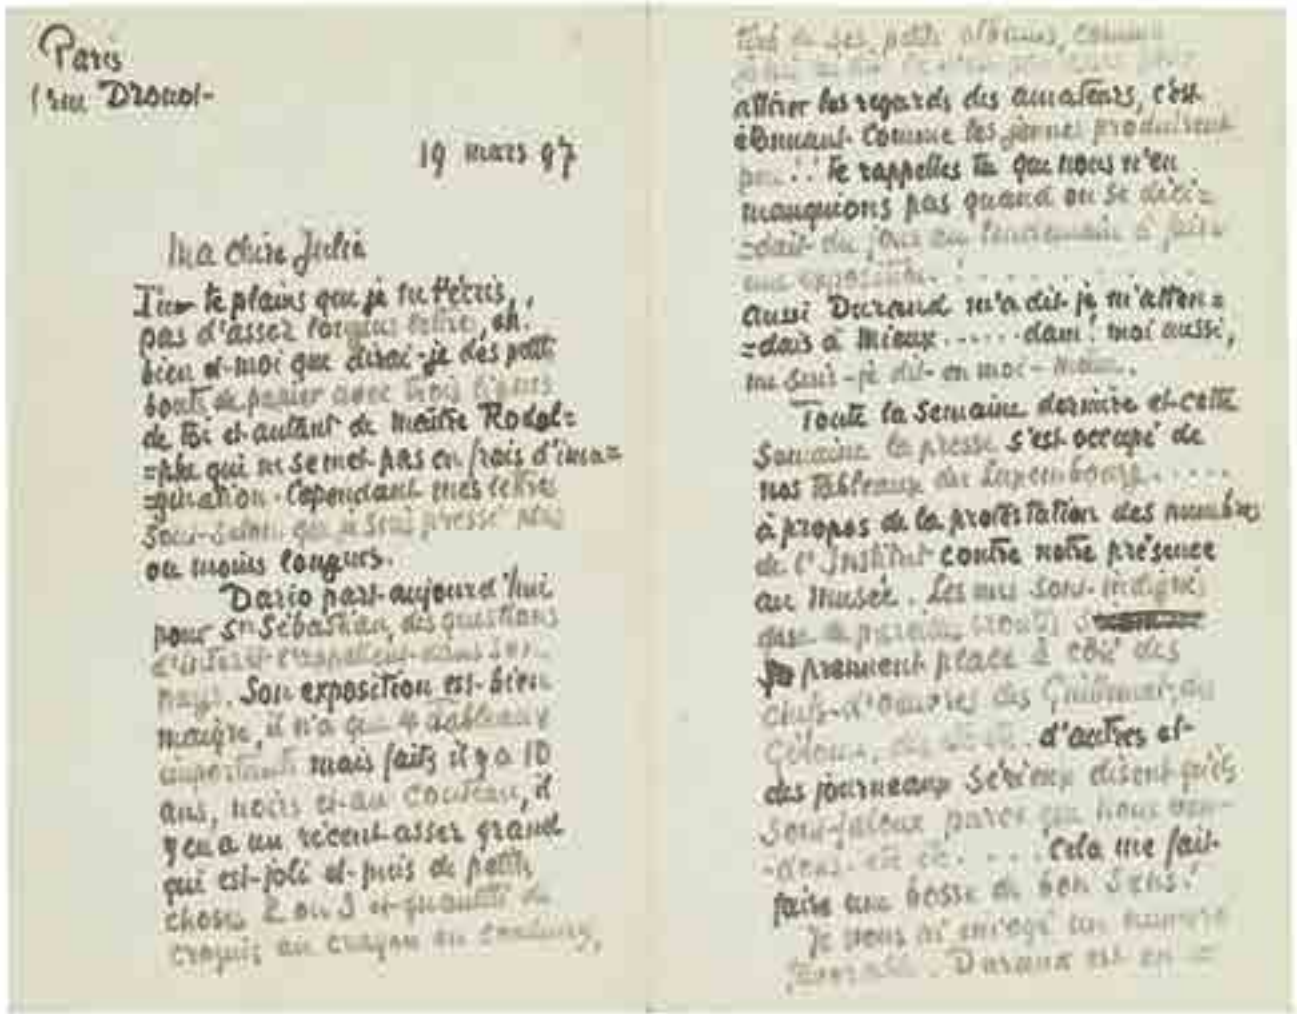 Paris
1 rue Drouot-
19 mars 97
Ma chère Julie
Tu te plains que je ne t'écris,
pas d'assez longues lettres, eh
bien et moi que dirai-je des petits
bouts de papier avec trois lignes
de toi et autant de Maître Rodol=
=phe qui ne se met pas en frais d'ima=
=gination. Cependant mes lettres
sont selon que je suis pressé plus
ou moins longues.
Dario part aujourd'hui
pour Sn Sébastian, des questions
d'intérêt l'appellent dans son
pays. Son exposition est bien
maigre, il n'a que 4 Tableaux
importants mais faits il y a 10
ans, noirs et au couteau, il
y en a un récent assez grand
qui est joli et puis de petites
choses 2 ou 3 et quantité de
croquis au crayon en couleurs,
de ses petits albums, comme
attirer les regards des amateurs, c'est
étonnant comme les jeunes produisent
peu!! Te rappelles tu que nous n'en
manquions pas quand on se déci=
=dait du jour au lendemain à faire
une exposition. . . . . . . . .
aussi Durand m'a dit je m'atten=
=dais à mieux ...... dam! moi aussi,
me suis-je dit en moi-même.
Toute la semaine dernière et cette
semaine la presse s'est occupé de
nos Tableaux du Luxembourg. . . . .
à propos de la protestation des membres
de l'Institut contre notre présence
au Musée. Les uns sont indignés
que de pareilles
prennent place à côté des
chefs-d'œuvres des Guillemet, au
d'autres et
des journeaux sérieux disent qu'ils
sont jaloux parce que nous ven=
=dons etc etc. . . . Cela me fait
faire une bosse de bon sens!
Je vous ai envoyé un numéro
est en =